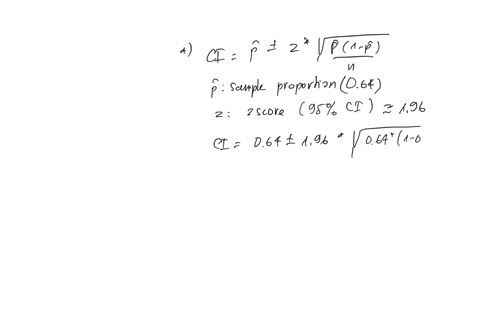 a) CI = p̂ ± z * √(p̂(1-p̂)/n)
p̂: sample proportion (0.64)
z: z score (95% CI) ≈ 1,96
CI = 0.64 ± 1,96 * √0.64*(1-0